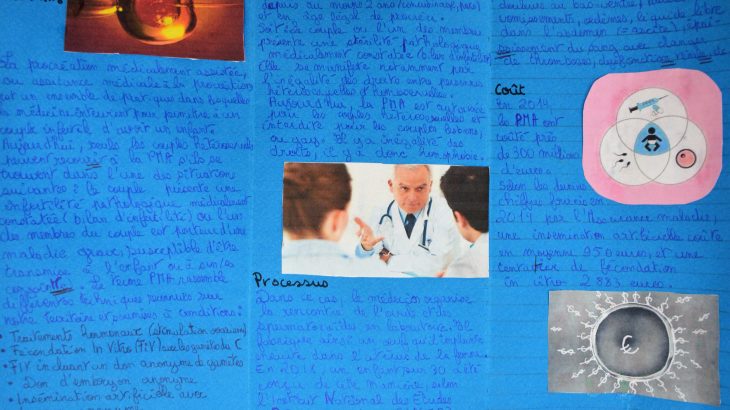 La procréation médicalement assistée,
ou assistance médicale à la procréation
est un ensemble de pratiques dans lesquelles
la médecine intervient pour permettre à un
couple infertile d'avoir un enfant
Aujourd'hui, seuls les couples hétérosexuels
peuvent recourir à la PMA s'ils se
trouvent dans l'une des situations
suivantes : le couple présente une
infertilité pathologique médicalement
constatée (bilan d'infertilité) ou l'un
des membres du couple est porteur d'une
maladie grave, susceptible d'être
transmise à l'enfant ou à son/sa
conjoint. Le terme PMA rassemble
différentes techniques
notre territoire et soumises à conditions :
Traitements hormonaux (stimulation ovarienne)
Fécondation In Vitro (FIV) avec les gamètes du C
FIV incluant un don anonyme de gamètes
Don d'embryon anonyme
Insémination artificielle avec
depuis au moins 2 ans
et en âge légal de procréer.
Soit le couple ou l'un des membres
présente une stérilité pathologique
médicalement constatée (bilan d'infertilité)
Elle se manifeste notamment par
l'inégalité des droits entre personnes
hétérosexuelles et homosexuelles.
Aujourd'hui, la PMA est autorisée
pour les couples hétérosexuels et
interdite pour les couples lesbiens,
ou gays. Il y a inégalité des
droits, il y a donc homophobie.
Processus
Dans ce cas, le médecin organise
la rencontre de l'ovule et des
spermatozoïdes en laboratoire. Il
fabrique ainsi un œuf qu'il implante
ensuite dans l'utérus de la femme.
En 2018, un enfant sur 30 a été
conçu de cette manière, selon
l'Institut National des Etudes
douleurs au bas-ventre,
vomissements, œdèmes, le guide libre
dans l'abdomen (= ascite), épais-
sissement du sang avec dangers
de thromboses, dysfonction rénale, de
Coût
En 2014,
la PMA ont
coûté près
de 300 millions
d'euros.
Selon les derniers
chiffres fournis en
2019 par l'Assurance maladie,
une insémination artificielle coûte
en moyenne 950 euros, et une
tentative de fécondation
in vitro 2 883 euros.